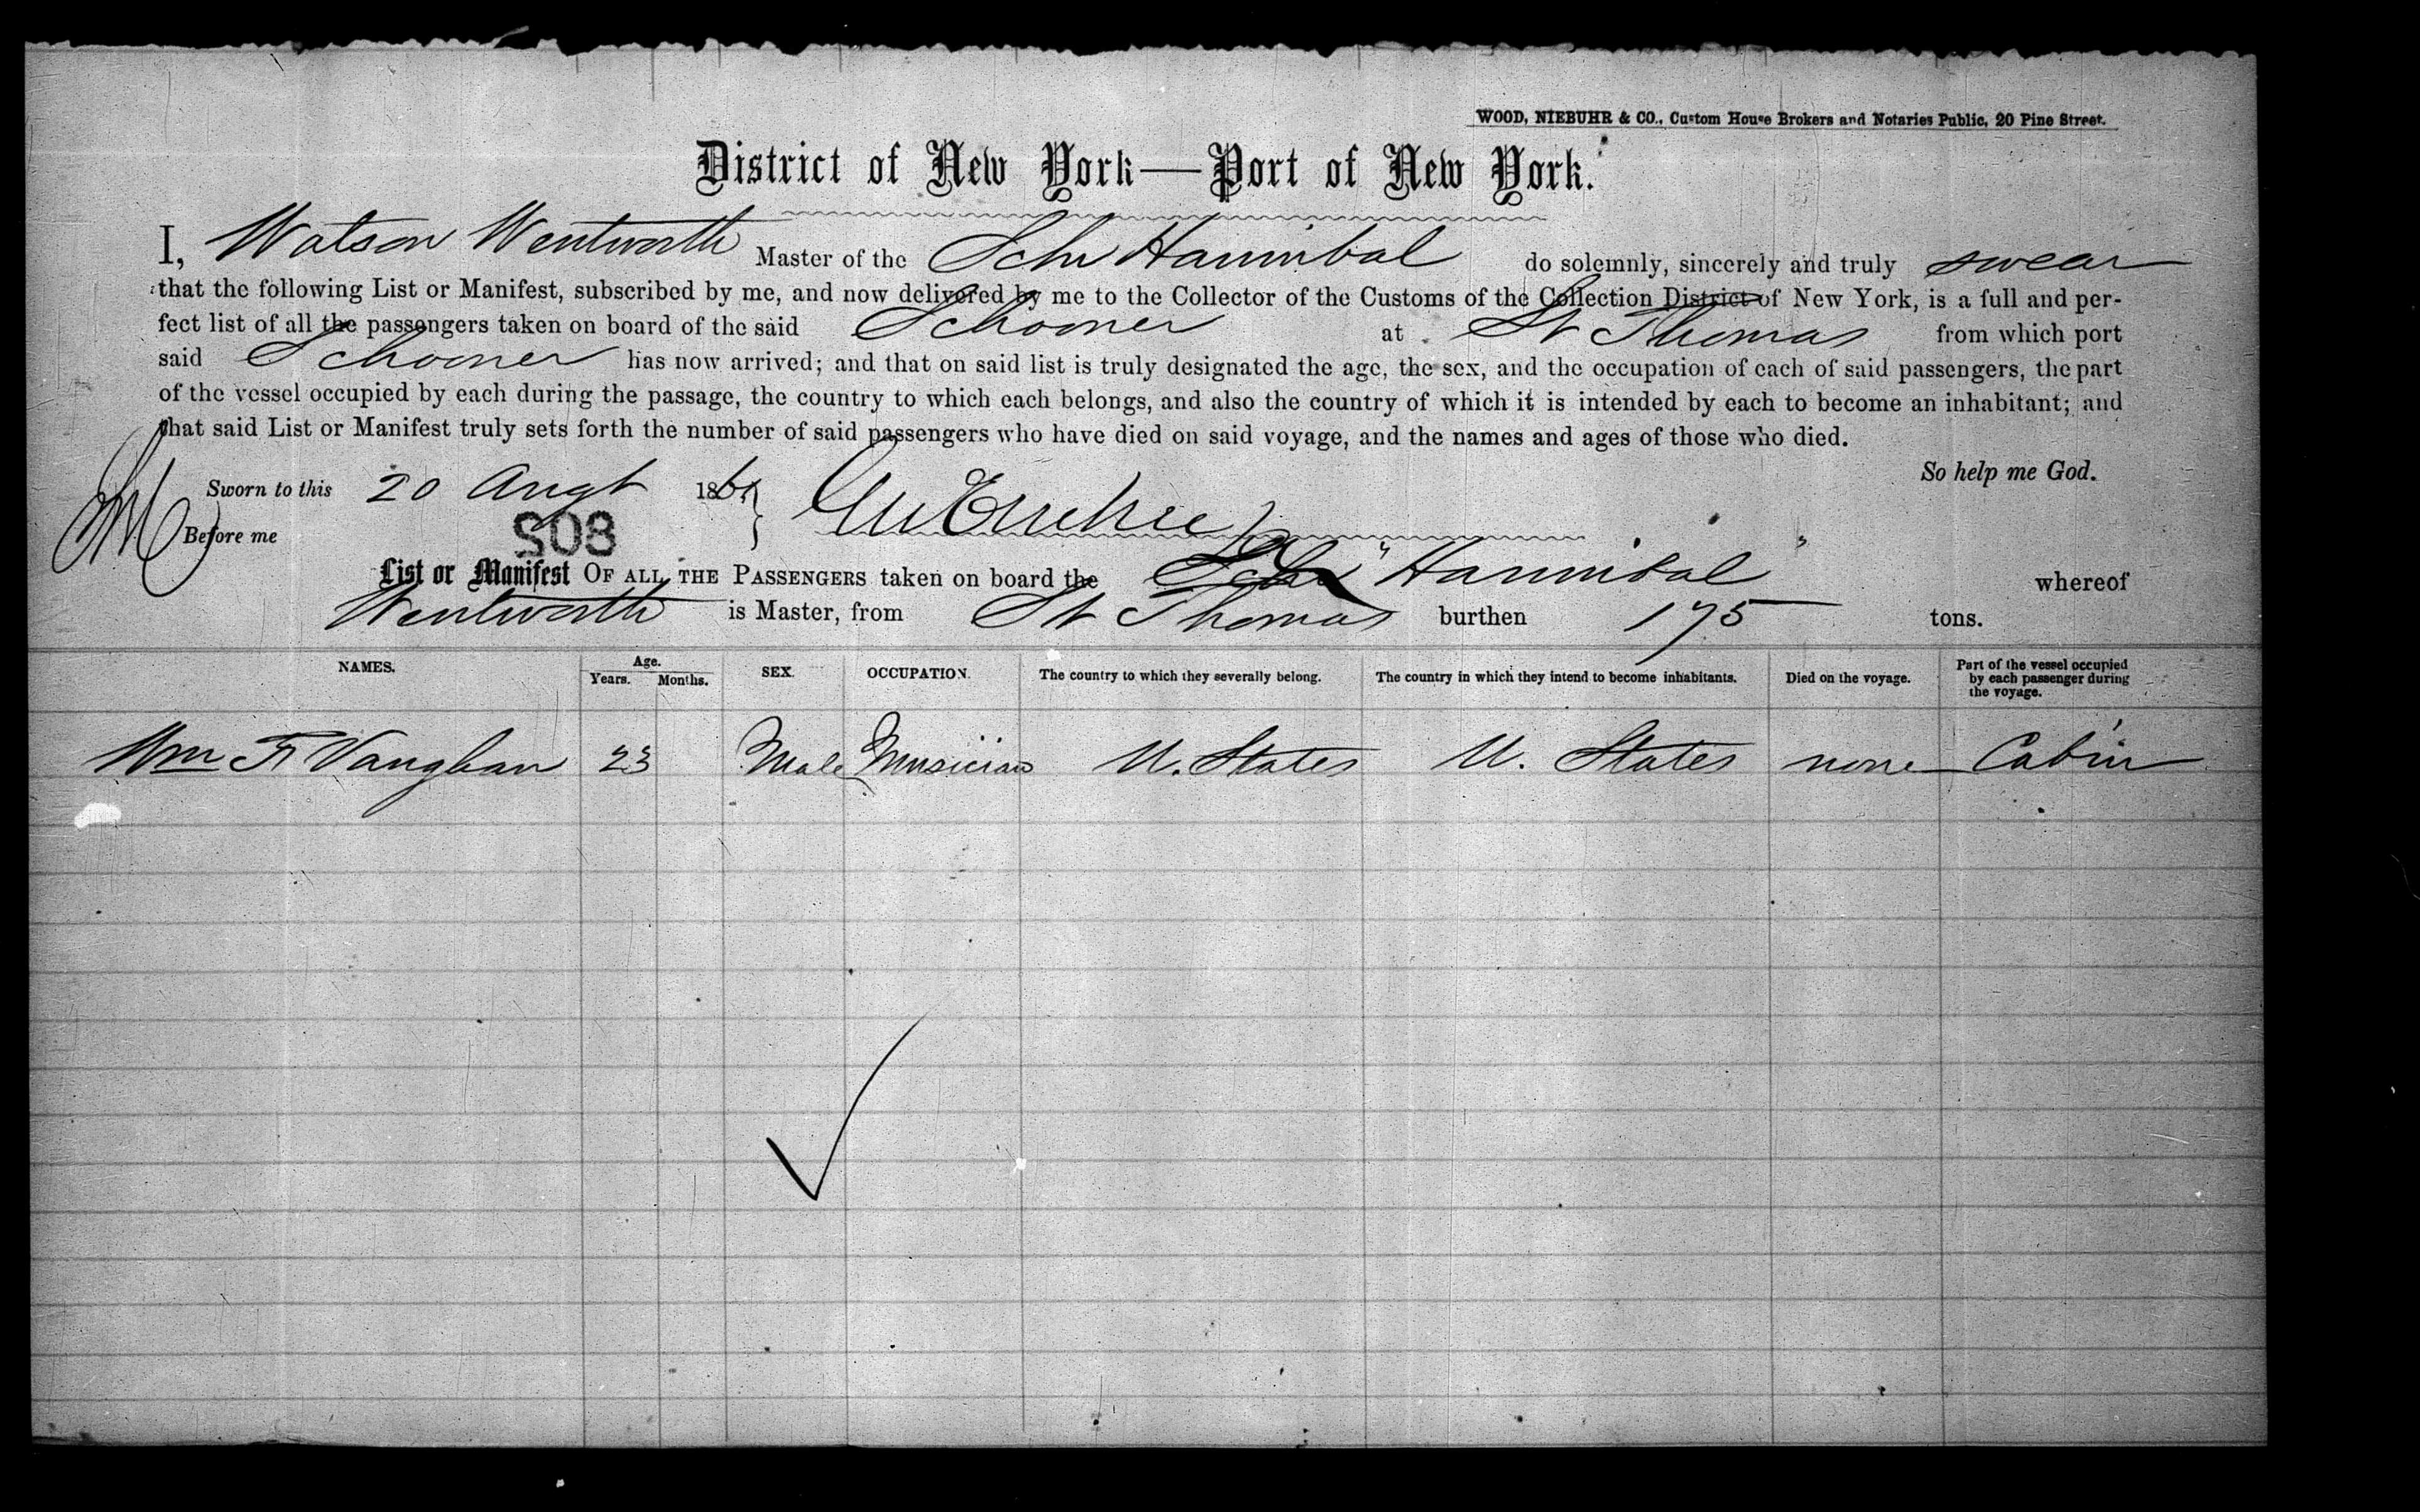 WOOD, NIEBUHR & CO., Custom House Brokers and Notaries Public, 20 Pine Street.
District of New York—Port of New York.
I, Watson Wentworth Master of the Schr Hannibal do solemnly, sincerely and truly swear
that the following List or Manifest, subscribed by me, and now delivered by me to the Collector of the Customs of the Collection District of New York, is a full and per-
fect list of all the passengers taken on board of the said Schooner at St Thomas from which port
said Schooner has now arrived; and that on said list is truly designated the age, the sex, and the occupation of each of said passengers, the part
of the vessel occupied by each during the passage, the country to which each belongs, and also the country of which it is intended by each to become an inhabitant; and
that said List or Manifest truly sets forth the number of said passengers who have died on said voyage, and the names and ages of those who died.
So help me God.
Sworn to this 20 Augt 186
Before me
808
List or Manifest OF ALL THE PASSENGERS taken on board the Schr "Hannibal" whereof
Wentworth is Master, from St Thomas burthen 175 tons.
NAMES. Age. Years. Months. SEX. OCCUPATION. The country to which they severally belong. The country in which they intend to become inhabitants. Died on the voyage. Part of the vessel occupied by each passenger during the voyage.
Wm F Vaughan 23 Male Musician U. States U. States none Cabin